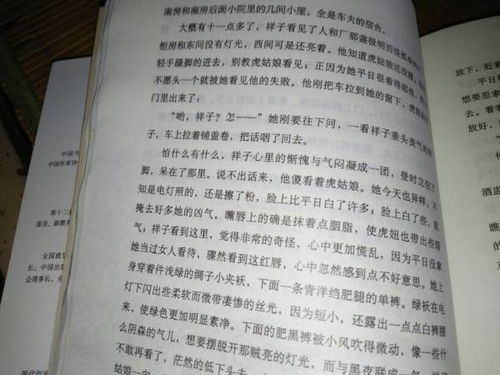 南房和南房后面小院里的几间小屋，全是车夫的宿舍。
大概有十一点多了，祥子看见了人和厂那盏极明而怪孤单的
柜房和东间没有灯光，西间可是还亮着。他知道虎姑娘还没睡。
轻手蹑脚的进去，别教虎姑娘看见；正因为她平日很看得起他，
不愿头一个就被她看见他的失败。他刚把车拉到她的窗下，虎妞
门里出来了：
“哟，祥子？怎——”她刚要往下问，一看祥子垂头丧气的样
子，车上拉着铺盖卷，把话咽了回去。
怕什么有什么，祥子心里的惭愧与气闷凝成一团，登时立住了
脚，呆在了那里。说不出话来，他傻看着虎姑娘。她今天也异样，不
知是电灯照的，还是擦了粉，脸上比平日白了许多；脸上白了些，就
掩去好多她的凶气。嘴唇上的确是抹着点胭脂，使虎妞也带出些媚
气；祥子看到这里，觉得非常的奇怪，心中更加慌乱，因为平日没拿
她当过女人看待，骤然看到这红唇，心中忽然感到点不好意思。她上
身穿着件浅绿的绸子小夹袄，下面一条青洋绉肥腿的单裤。绿袄在电
灯下闪出些柔软而微带凄惨的丝光，因为短小，还露出一点点白裤腰
来，使绿色更加明显素净。下面的肥黑裤被小风吹得微动，像一些什
么阴森的气儿，想要摆脱开那贼亮的灯光，而与黑夜联成一气。
不敢再看了，茫然的低下头去
中国作家协
第十二届
委员、新教育
全国政协
长、中国出版
会理事长，全
放下，赶紧
想要思索